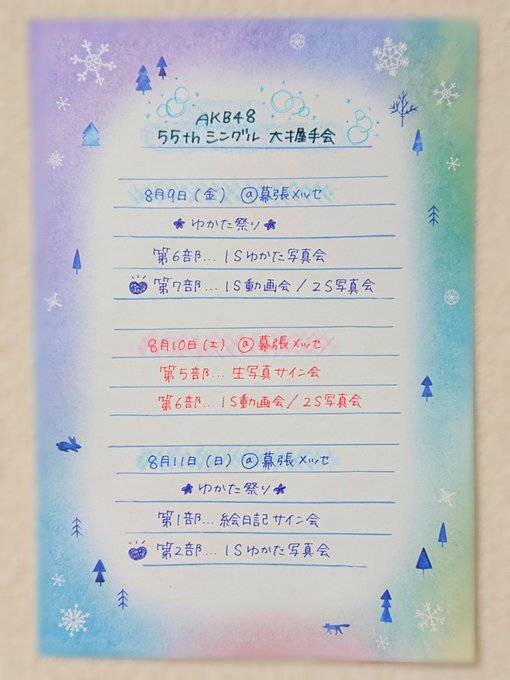 AKB48
55thシングル 大握手会
8月9日(金) @幕張メッセ
ゆかた祭り
第6部… 1Sゆかた写真会
第7部… 1S動画会/2S写真会
8月10日(土) @幕張メッセ
第5部… 生写真サイン会
第6部… 1S動画会/2S写真会
8月11日(日) @幕張メッセ
ゆかた祭り
第1部… 絵日記サイン会
第2部… 1Sゆかた写真会